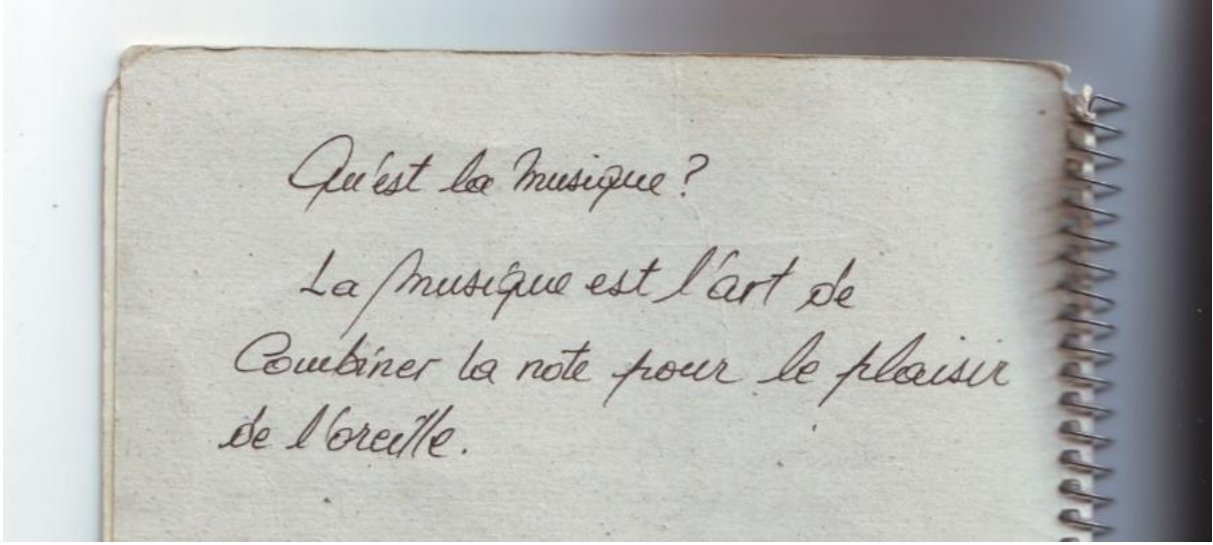 Qu'est la musique?
La musique est l'art de
Combiner la note pour le plaisir
de l'oreille.